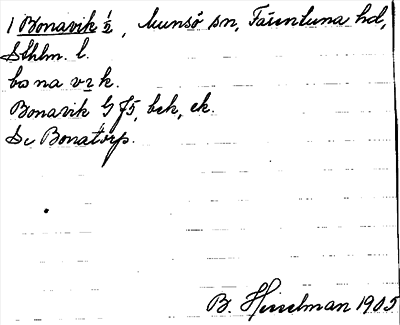 1 Bonavik ½, Munsö sn, Färentuna hd,
Sthlm. l.
bo na vɪk.
Bonavik G J5, bek, ek.
Se Bonatorp.
B. Hesselman 1905